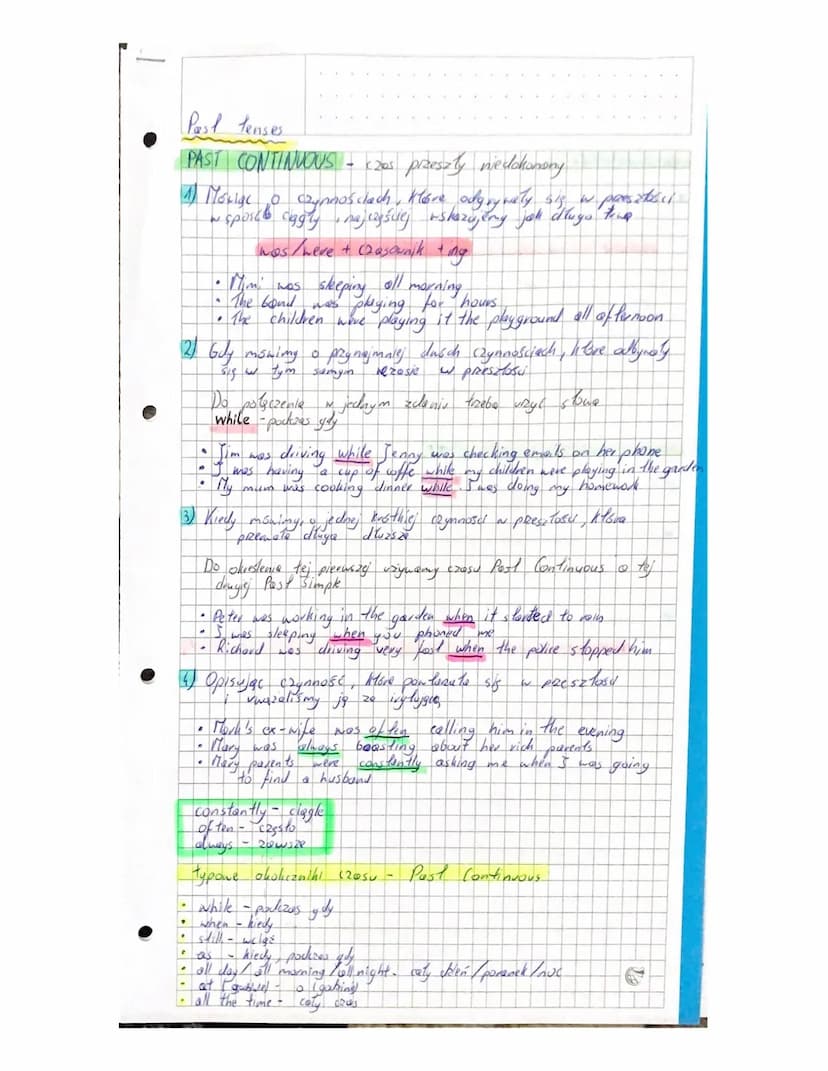 Past tenses
PAST CONTINUOUS - czas przeszły niedokonany
1) Mówiąc o czynnościach, które odgrywały się w przeszłości
w sposób ciągły, najczęściej wskazujemy jak długo trwa
was/were + czasownik + ing
• Mimi was sleeping all morning
• The band was playing for hours
• The children were playing it the playground all afternoon
2) Gdy mówimy o przynajmniej dwóch czynnościach, które odbywały
się w tym samym czasie w przeszłości
Do połączenia w jednym zdaniu trzeba użyć słowa
while - podczas gdy
• Jim was driving while Jenny was checking emails on her phone
• I was having a cup of coffe while my children were playing in the garden
• My mum was cooking dinner while I was doing my homework
3) Kiedy mówimy o jednej krótkiej czynności w przeszłości, która
długa dłuższe
Do określenia tej pierwszej używamy czasu Past Continuous a tej
drugiej Past Simple
• Peter was working in the garden when it started to rain
• I was sleeping when you phoned me
• Richard was driving very fast when the police stopped him
4) Opisując czynność, która powtarzała się w przeszłości
i uważaliśmy ją za irytującą
• Mark's ex-wife was often calling him in the evening
• Mary was always boasting about her rich parents
• Mary parents were constantly asking me when I was going
to find a husband
constantly - ciągle
often - często
always - zawsze
typowe okoliczniki czasu - Past Continuous
• while - podczas gdy
• when - kiedy
• still - wciąż
• as - kiedy, podczas gdy
• all day / all morning / all night - cały dzień / poranek / noc
• at [godzina] - o (godzinie)
• all the time - cały czas